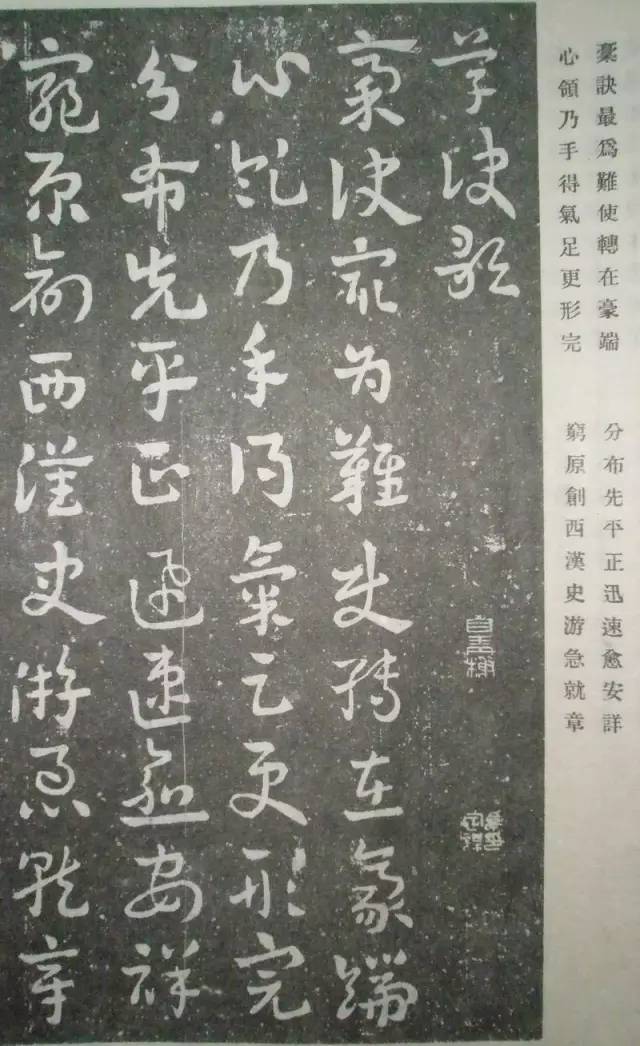 稾訣最爲難使轉在豪端
分布先平正迅速愈安詳
心領乃手得氣足更形完
窮原創西漢史游急就章
草訣歌
稾訣最爲難使轉在豪端
心領乃手得氣足更形完
分布先平正迅速愈安詳
窮原創西漢史游急就章